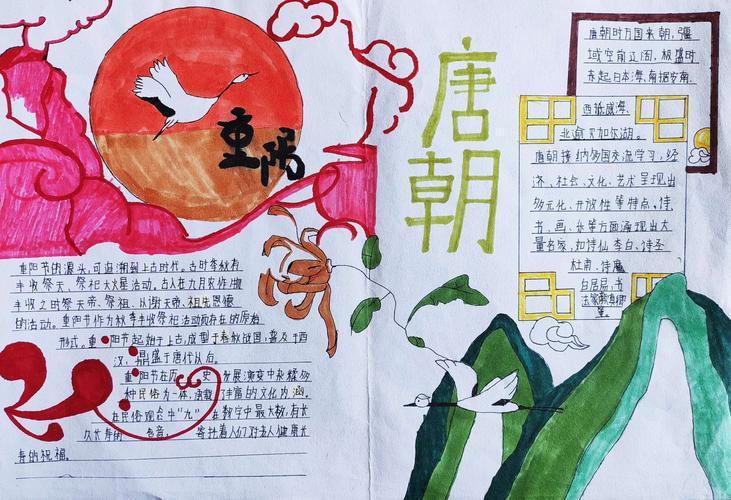 重阳
重阳节的源头，可追溯到上古时代。古时季秋有
丰收祭天、祭祀大火星活动。古人在九月农作物
丰收之时祭天帝、祭祖，以谢天帝、祖先恩德
的活动。重阳节作为秋季丰收祭祀活动而存在的原始
形式。重阳节起始于上古，成型于春秋战国，普及于西
汉，鼎盛于唐代以后。
重阳节在历史发展演变中杂糅多
种民俗为一体，承载了丰富的文化内涵。
在民俗观念中“九”在数字中最大数，有长
久长寿的 含意， 寄托着人们对老人健康长
寿的祝福。
唐朝
唐朝时万国来朝，疆
域空前辽阔，极盛时
东起日本海、南据安南、
西抵咸海、
北逾贝加尔湖。
唐朝接纳多国交流学习，经
济、社会、文化、艺术呈现出
多元化、开放性等特点，诗、
书、画、乐等方面涌现出大
量名家，如诗仙李白、诗圣
杜甫、诗魔
白居易，书
法家颜真卿